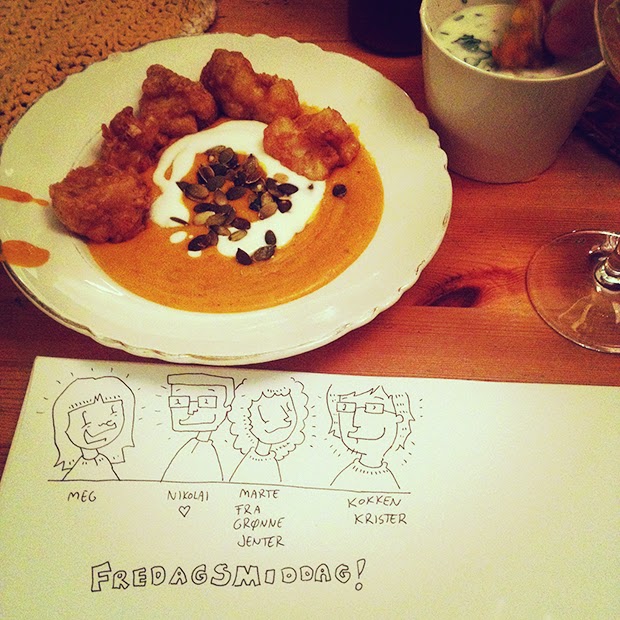 MEG
NIKOLAI
♡
MARTE
FRA
GRØNNE
JENTER
KOKKEN
KRISTER
FREDAGSMIDDAG!